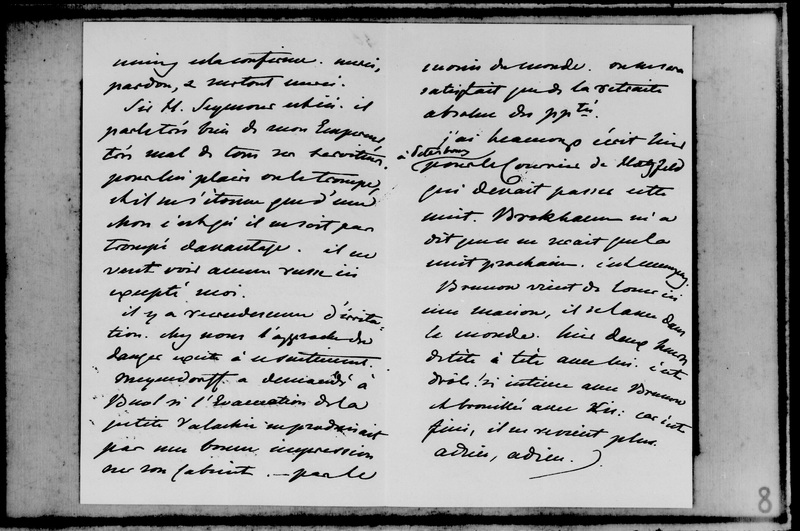 uning et la confirme. merci,
pardon, & surtout merci.
Sir H. Seymour est ici. il
parle très bien de mon Empereur
très mal de tous ses serviteurs.
pour lui plaire on le trompe,
et il ne s'étonne que d'une
chose c'est qu'il ne soit pas
trompé davantage. il ne
veut voir aucun russe ici
excepté moi.
il y a recrudescence d'irrita-
tion chez nous l'approche du
danger excite à ce sentiment.
Meyendorff a demandé à
Buol si l'Evacuation de la
petite Valachie ne produisait
pas une bonne impression
sur son Cabinet. — pas le
moins du monde. on ne sera
satisfait que de la retraite
absolue des pptés.
j'ai beaucoup écrit hier
à Petersbourg
pour le Courrier de Hatzfeld
qui devait passer cette
nuit. Brokhausen m'a
dit que ce ne serait que la
nuit prochaine. c'est ennuyeux.
Brunnow vient de louer ici
une maison, il se lance dans
le monde. hier deux heures
de tête à tête avec lui. c'est
drôle! si intime avec Brunnow
et brouillée avec Kis: car c'est
fini, il ne revient plus.
adieu, adieu.
8